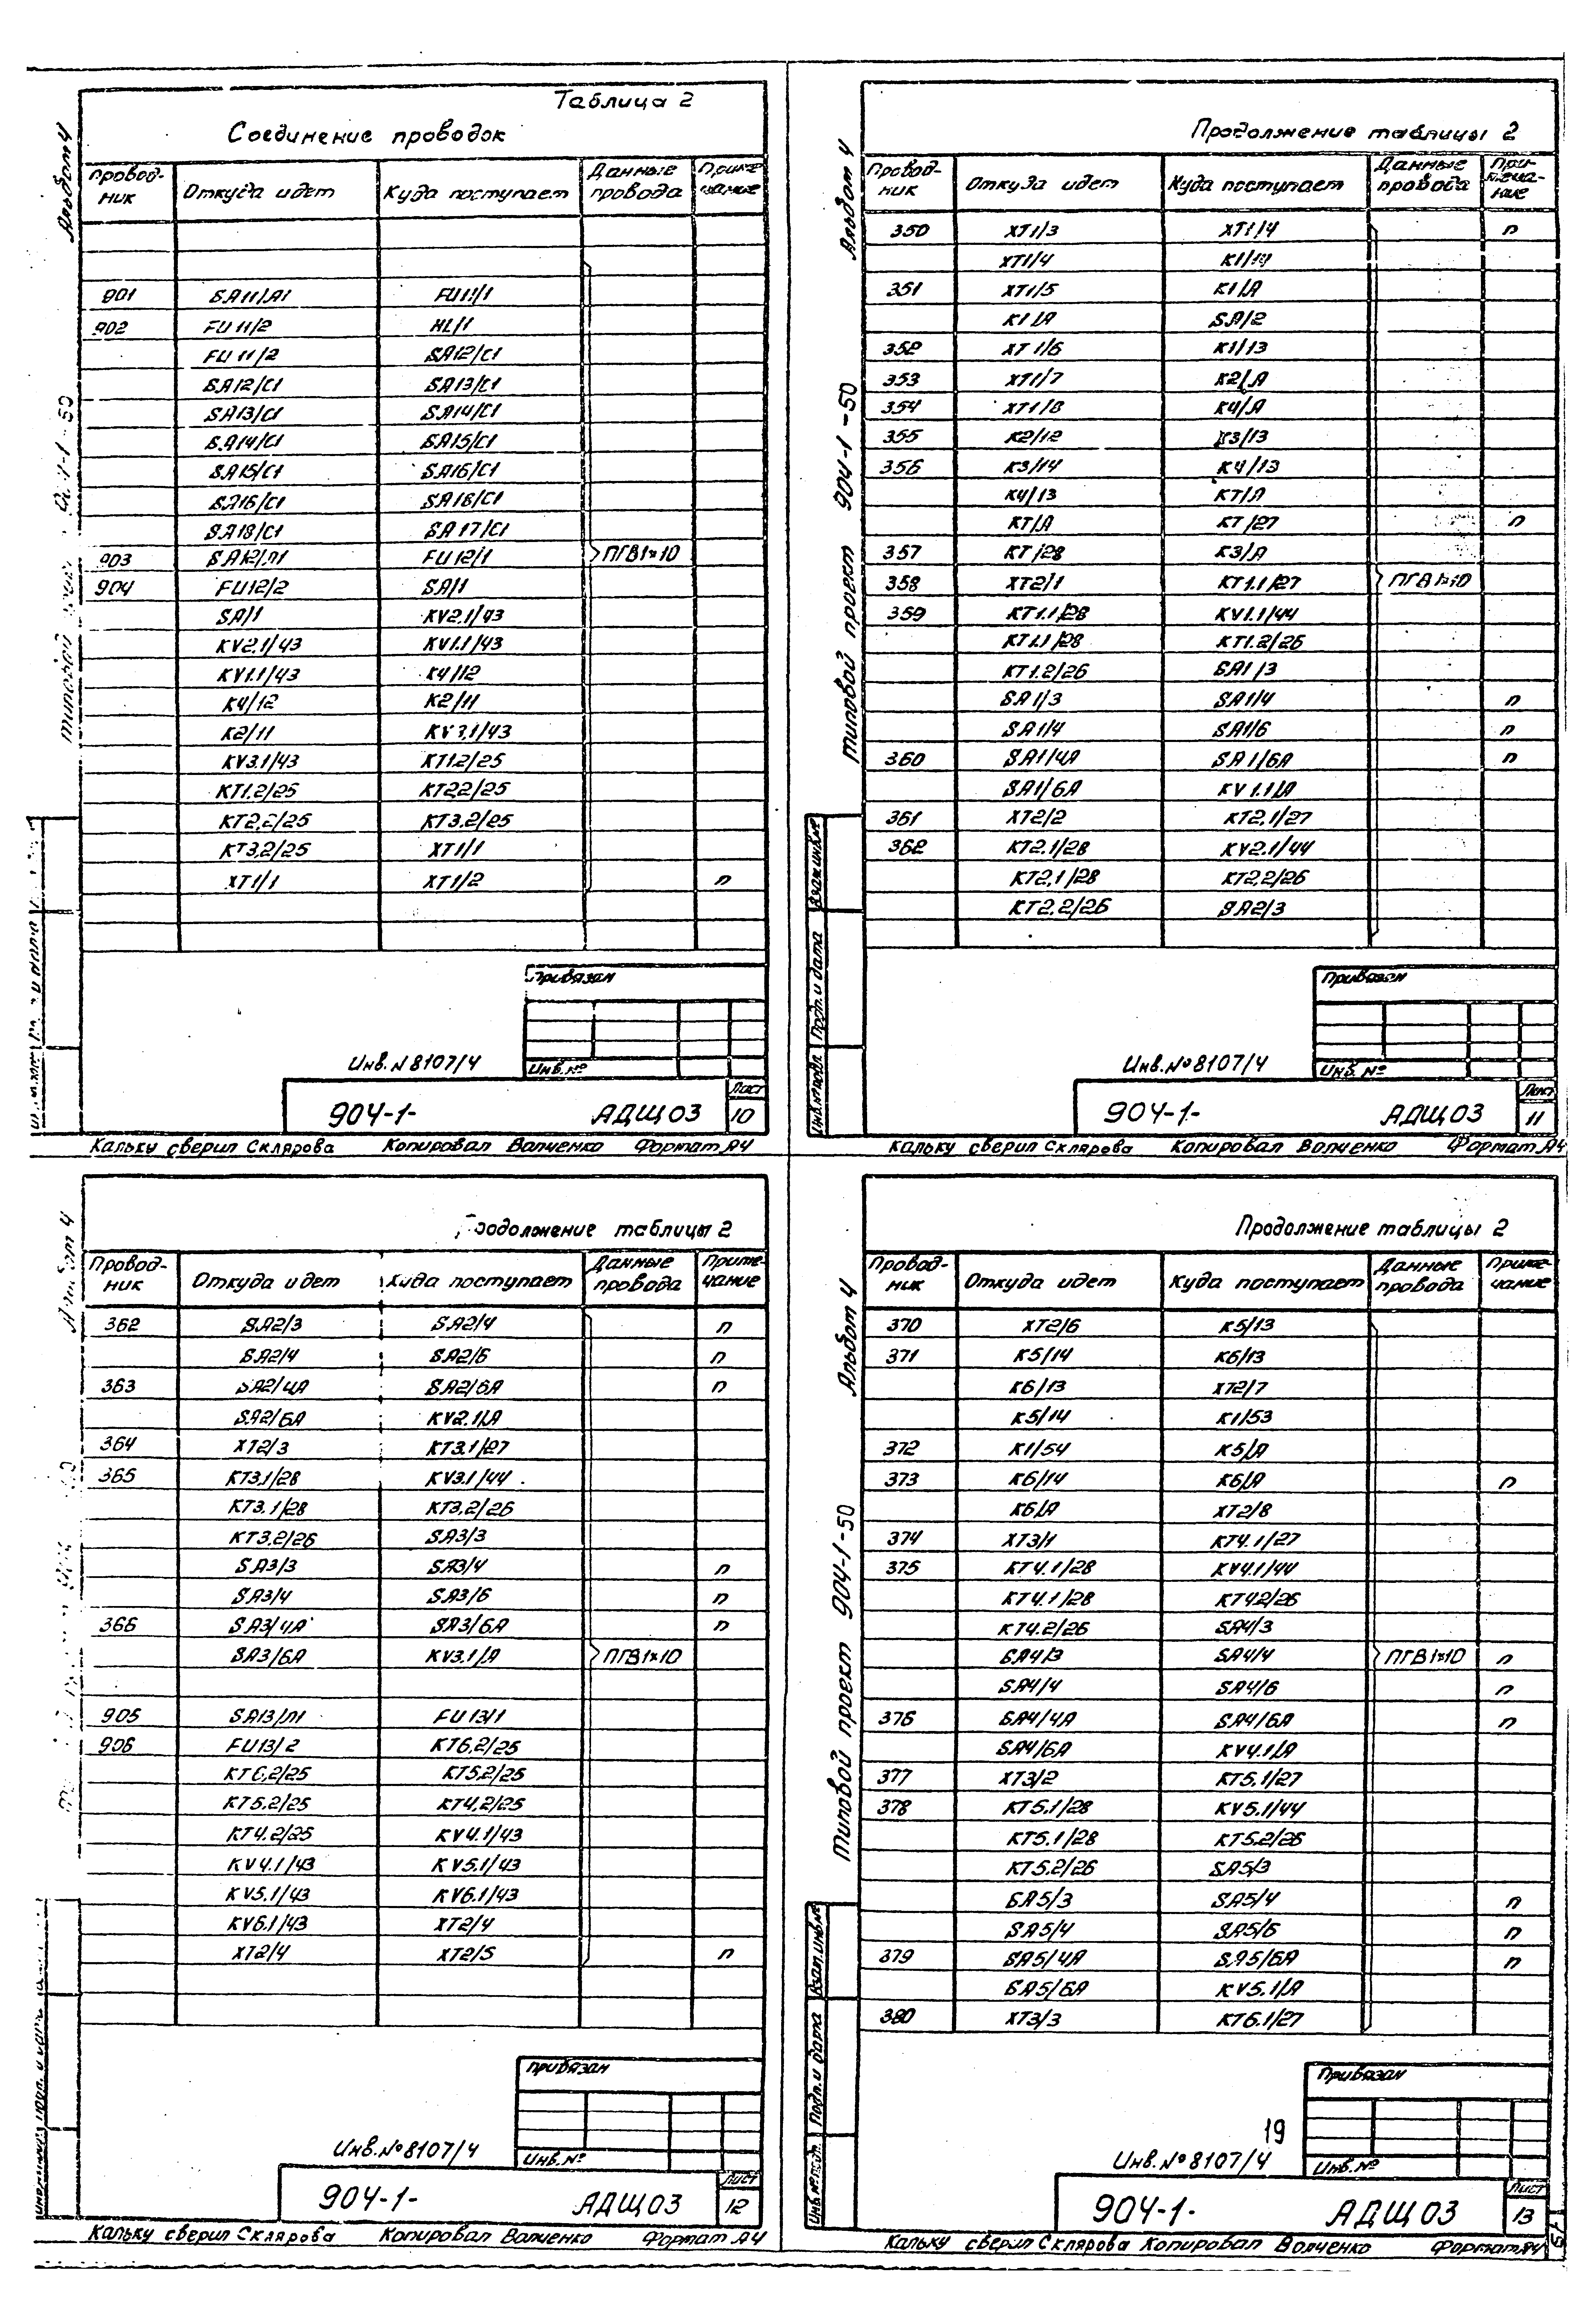 Таблица 2
Соединение проводок
Альбом 4
Провод-ник Откуда идет Куда поступает Данные провода Приме-чание
901 SA11/Л1 FU11/1
902 FU11/2 HL/1
FU11/2 SA12/C1
SA12/C1 SA13/C1
SA13/C1 SA14/C1
SA14/C1 SA15/C1
SA15/C1 SA16/C1
SA16/C1 SA18/C1
SA18/C1 SA17/C1
903 SA12/Л1 FU12/1 ПГВ1×10
904 FU12/2 SA/1
SA/1 KV2.1/43
KV2.1/43 KV1.1/43
KV1.1/43 K4/12
K4/12 K2/11
K2/11 KV3.1/43
KV3.1/43 KT1.2/25
KT1.2/25 KT2.2/25
KT2.2/25 KT3.2/25
KT3.2/25 XT1/1
XT1/1 XT1/2 п
Привязан
Инв.N 8107/4
Инв.№
904-1- АДЩ03
Лист
10
Кальку сверил Склярова Копировал Волченко Формат А4
Продолжение таблицы 2
Альбом 4
Типовой проект 904-1-50
Провод-ник Откуда идет Куда поступает Данные провода При-меча-ние
350 XT1/3 XT1/4 п
XT1/4 K1/14
351 XT1/5 K1/A
K1/A SA/2
352 XT1/6 K1/13
353 XT1/7 K2/A
354 XT1/8 K4/A
355 K2/12 K3/13
356 K3/14 K4/13
K4/13 KT/A
KT/A KT/27 п
357 KT/28 K3/A
358 XT2/1 KT1.1/27 ПГВ1×10
359 KT1.1/28 KV1.1/44
KT1.1/28 KT1.2/26
KT1.2/26 SA1/3
SA1/3 SA1/4 п
SA1/4 SA1/6 п
360 SA1/4A SA1/6A п
SA1/6A KV1.1/A
361 XT2/2 KT2.1/27
362 KT2.1/28 KV2.1/44
KT2.1/28 KT2.2/26
KT2.2/26 SA2/3
Взам.инв.№
Подп. и дата
Инв.№ подл.
Привязан
Инв.№ 8107/4
Инв. №
904-1- АДЩ03
Лист
11
Кальку сверил Склярова Копировал Волченко Формат А4
Продолжение таблицы 2
Альбом 4
Провод-ник Откуда идет Куда поступает Данные провода Приме-чание
362 SA2/3 SA2/4 п
SA2/4 SA2/6 п
363 SA2/4A SA2/6A п
SA2/6A KV2.1/A
364 XT2/3 KT3.1/27
365 KT3.1/28 KV3.1/44
KT3.1/28 KT3.2/26
KT3.2/26 SA3/3
SA3/3 SA3/4 п
SA3/4 SA3/6 п
366 SA3/4A SA3/6A п
SA3/6A KV3.1/A ПГВ1×10
905 SA13/Л1 FU13/1
906 FU13/2 KT6.2/25
KT6.2/25 KT5.2/25
KT5.2/25 KT4.2/25
KT4.2/25 KV4.1/43
KV4.1/43 KV5.1/43
KV5.1/43 KV6.1/43
KV6.1/43 XT2/4
XT2/4 XT2/5 п
Привязан
Инв.№ 8107/4
Инв.№
904-1- АДЩ03
Лист
12
Кальку сверил Склярова Копировал Волченко Формат А4
Продолжение таблицы 2
Альбом 4
Типовой проект 904-1-50
Провод-ник Откуда идет Куда поступает Данные провода Приме-чание
370 XT2/6 K5/13
371 K5/14 K6/13
K6/13 XT2/7
K5/14 K1/53
372 K1/54 K5/A
373 K6/14 K6/A п
K6/A XT2/8
374 XT3/1 KT4.1/27
375 KT4.1/28 KV4.1/44
KT4.1/28 KT4.2/26
KT4.2/26 SA4/3
SA4/3 SA4/4 ПГВ1×10 п
SA4/4 SA4/6 п
376 SA4/4A SA4/6A п
SA4/6A KV4.1/A
377 XT3/2 KT5.1/27
378 KT5.1/28 KV5.1/44
KT5.1/28 KT5.2/26
KT5.2/26 SA5/3
SA5/3 SA5/4 п
SA5/4 SA5/6 п
379 SA5/4A SA5/6A п
SA5/6A KV5.1/A
380 XT3/3 KT6.1/27
Взам.инв.№
Подп. и дата
Инв.№ подл.
Привязан
19
Инв.№ 8107/4
Инв.№
904-1- АДЩ03
Лист
13
Кальку сверил Склярова Копировал Волченко Формат А4